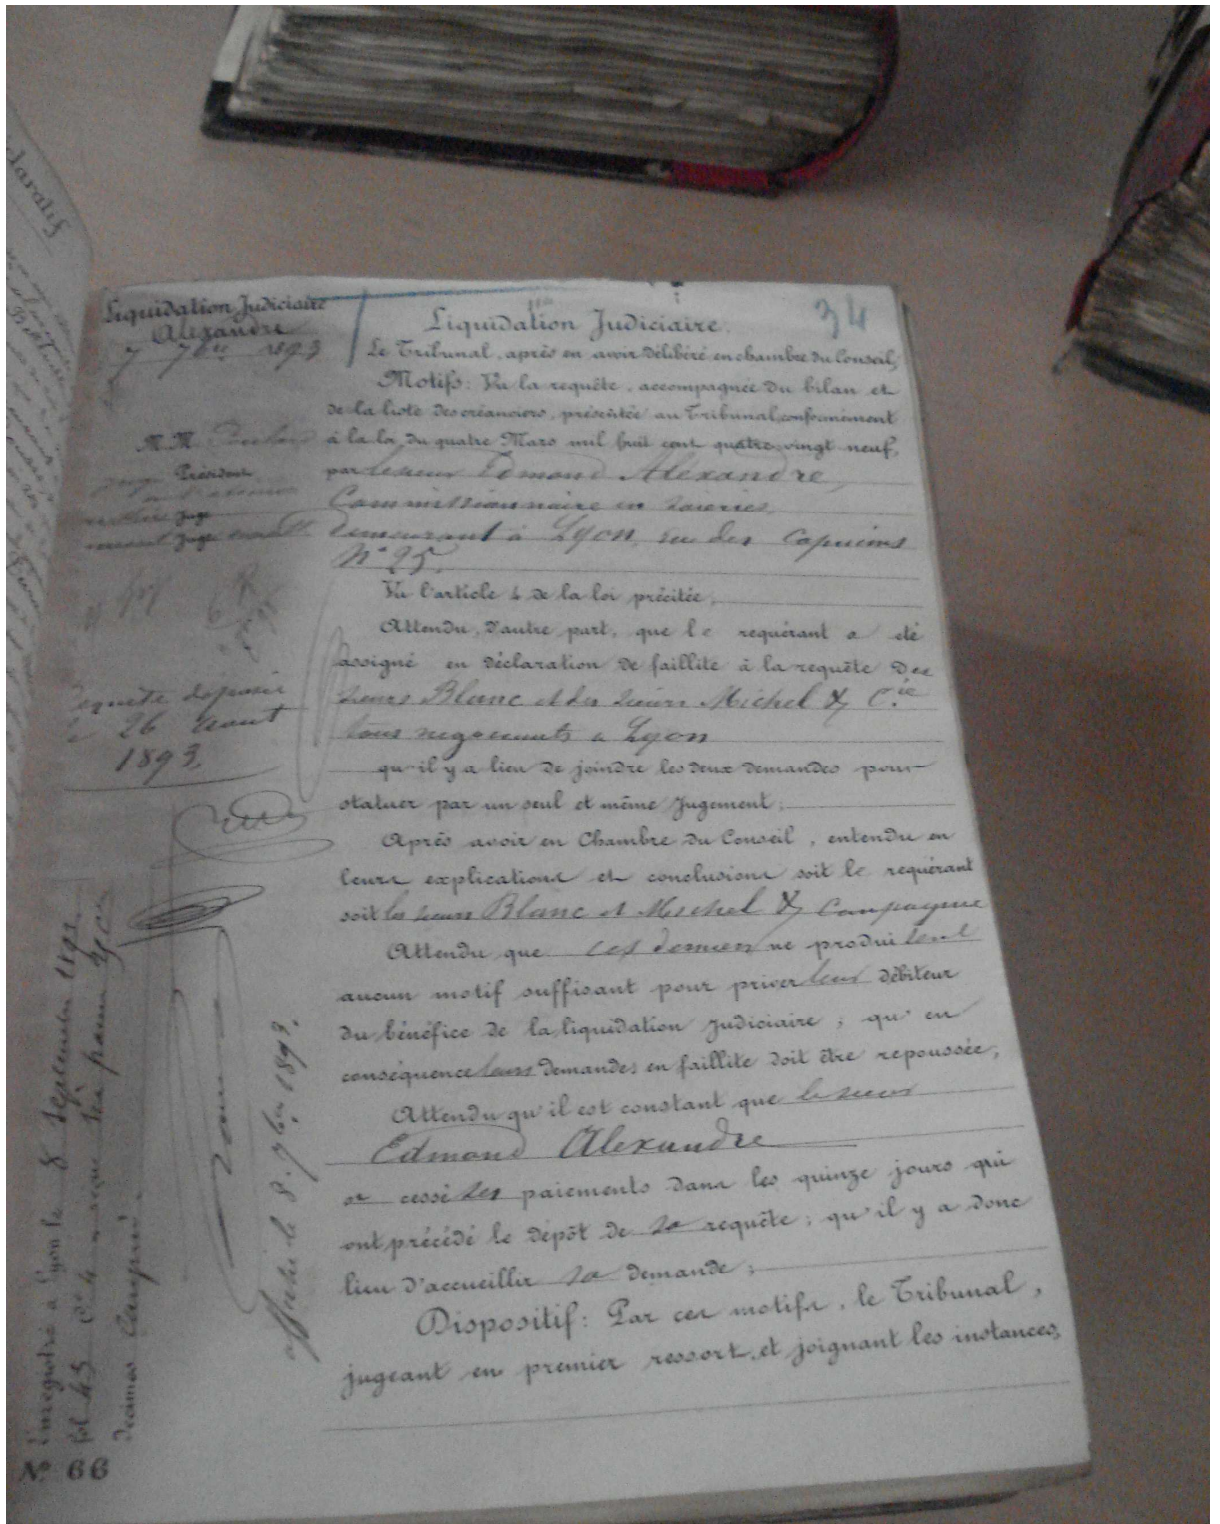 Liquidation Judiciaire
Alexandre
7 7bre 1893
M.M.
Président
Juge
Juge
requête déposée
le 26 Aout
1893.
Enregistré à Lyon le 8 septembre
fol 45
décimes compris
affiché le 8. 7bre 1893.
Nº 66
34
Liquidation Judiciaire.
Le Tribunal, après en avoir délibéré en chambre du Conseil,
Motifs: Vu la requête, accompagnée du bilan et
de la liste des créanciers, présentée au Tribunal, conformément
à la loi du quatre Mars mil huit cent quatre-vingt neuf,
par le sieur Edmond Alexandre,
Commissionnaire en soieries
demeurant à Lyon, rue des Capucins
Nº 25.
Vu l'article 4 de la loi précitée,
Attendu, d'autre part, que le requérant a été
assigné en déclaration de faillite à la requête des
sieurs Blanc et des sieurs Michel & Cie
tous négociants à Lyon
qu'il y a lieu de joindre les deux demandes pour
statuer par un seul et même Jugement;
Après avoir en Chambre du Conseil, entendu en
leurs explications et conclusions soit le requérant
soit les sieurs Blanc et Michel & Compagnie
Attendu que ces derniers ne produisent
aucun motif suffisant pour priver leur débiteur
du bénéfice de la liquidation Judiciaire; qu'en
conséquence leurs demandes en faillite doit être repoussée;
Attendu qu'il est constant que le sieur
Edmond Alexandre
a cessé ses paiements dans les quinze jours qui
ont précédé le dépôt de sa requête; qu'il y a donc
lieu d'accueillir sa demande;
Dispositif: Par ces motifs, le Tribunal,
jugeant en premier ressort, et joignant les instances,